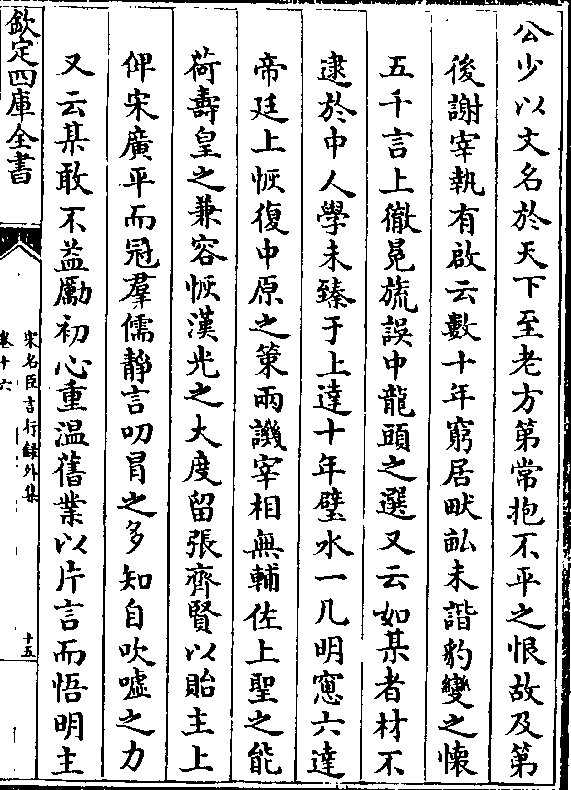 公少以文名於天下至老方第常抱不平之恨故及第
後謝宰執有啟云數十年窮居畎畝未諧豹變之懷
五千言上徹冕旒誤中龍頭之選又云如某者材不
逮於中人學未臻于上達十年璧水一几明窻六達
帝廷上恢復中原之策兩譏宰相無輔佐上聖之能
荷壽皇之兼容恢漢光之大度留張齊賢以貽主上
俾宋廣平而冠羣儒靜言叨冒之多知自吹噓之力
又云某敢不益勵初心重温舊業以片言而悟明主
欽定四庫全書
宋名臣言行録外集
卷十六
十五